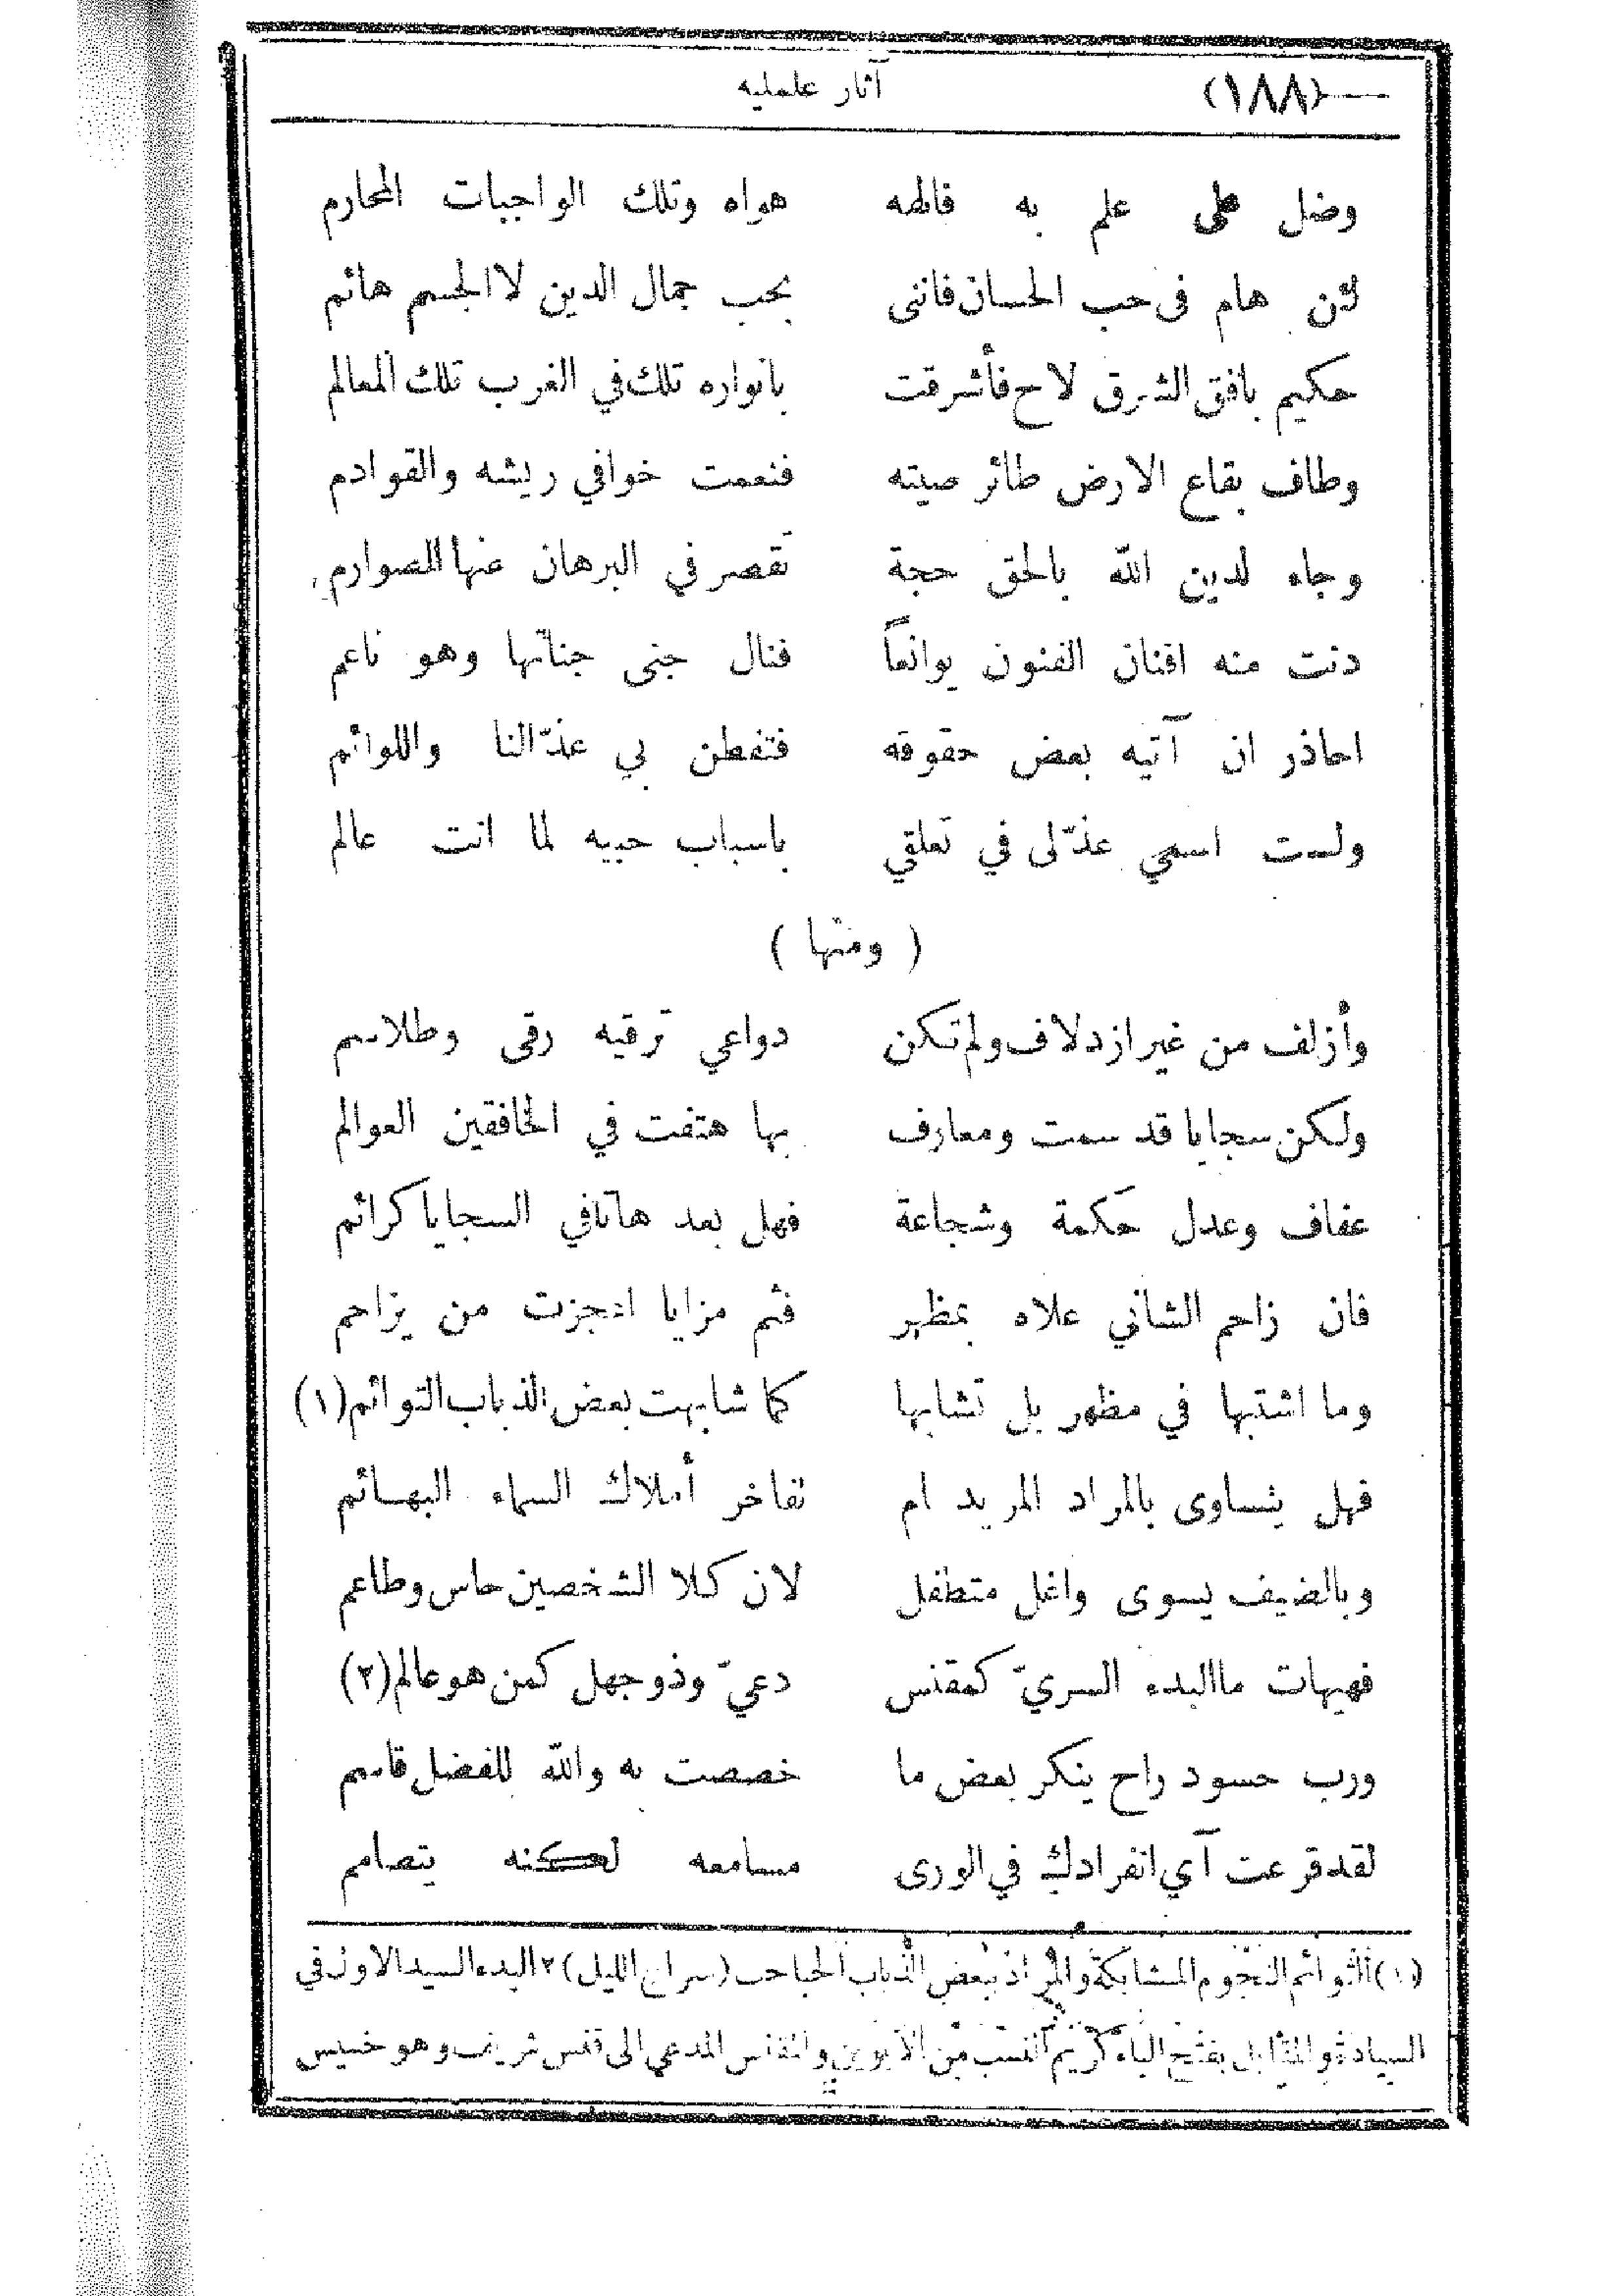 (١٨٨) آثار علمليه
وضل على علم به فالهه هواه وتلك الواجبات المحارم
لئن هام فى حب الحسان فاننى بحب جمال الدين لا الجسم هائم
حكيم بافق الشرق لاح فأشرقت بانواره تلك في الغرب تلك المعالم
وطاف بقاع الارض طائر صيته فنعمت خوافي ريشه والقوادم
وجاء لدين الله بالحق حجة تقصر في البرهان عنها الصوارم
دنت منه افنان الفنون يوانعاً فنال جنى جناتها وهو ناعم
احاذر ان آتيه بعض حقوقه فتفطن بي عذّالنا واللوائم
ولست اسمي عذّلى في تعلقي باسباب حبيه لما انت عالم
( ومنها )
وأزلف من غير ازدلاف ولم تكن دواعي ترقيه رقى وطلاسم
ولكن سجايا قد سمت ومعارف بها هتفت في الخافقين العوالم
عفاف وعدل حكمة وشجاعة فهل بعد هاتافي السجايا كرائم
فان زاحم الشاني علاه بمظهر فثم مزايا اعجزت من يزاحم
وما اشتبها في مظهر بل تشابها كما شابهت بعض الذباب التوائم (١)
فهل يتساوى بالمراد المريد ام تفاخر أملاك السماء البهائم
وبالضيف يسوى واغل متطفل لان كلا الشخصين حاس وطاعم
فهيهات ما البدء السريّ كمقنس دعيّ وذو جهل كمن هو عالم (٢)
ورب حسود راح ينكر بعض ما خصصت به والله للفضل قاسم
لقد قرعت آي انفرادك في الورى مسامعه لكنه يتصامم
(١) التوائم النجوم المشابكة والمراد ببعض الذباب الحباحب (سراج الليل) ٢ البدء السيد الاول في
السيادة والمقابل بفتح الباء كريم النسب من الابوين والمقنس المدعي الى قنس شريف وهو خسيس